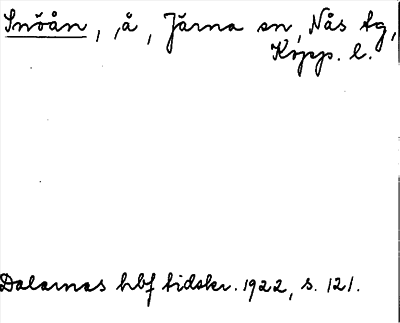 Snöån, ,å, Järna sn, Nås tg,
Kopp. l.
Dalarnas hbf tidskr. 1922, s. 121.